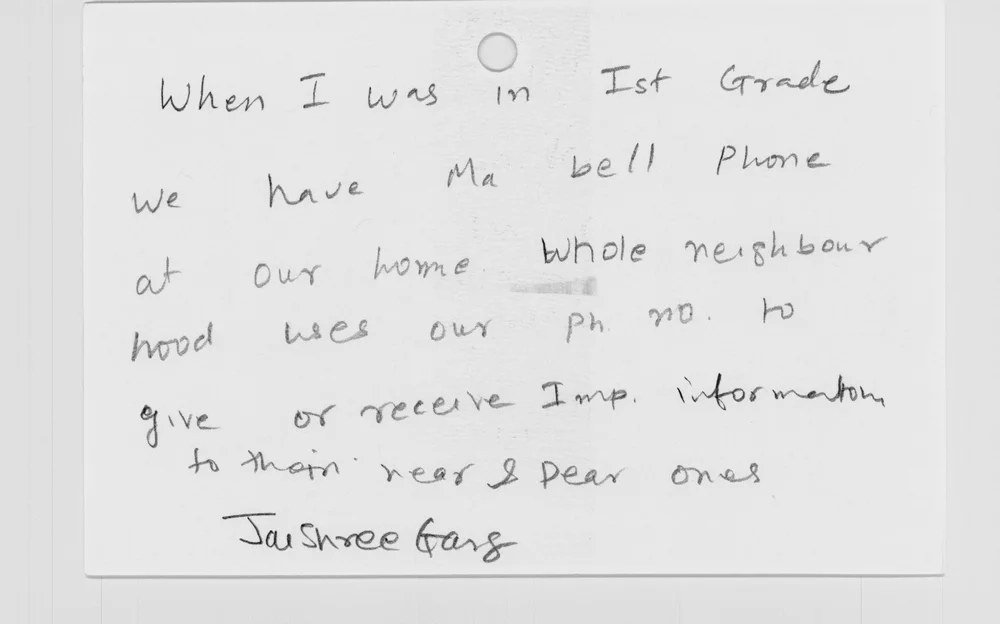 When I was in Ist Grade
we have Ma bell Phone
at our home. Whole neighbour
hood uses our ph. no. to
give or receive Imp. information
to their near & Dear ones
Jaishree Garg